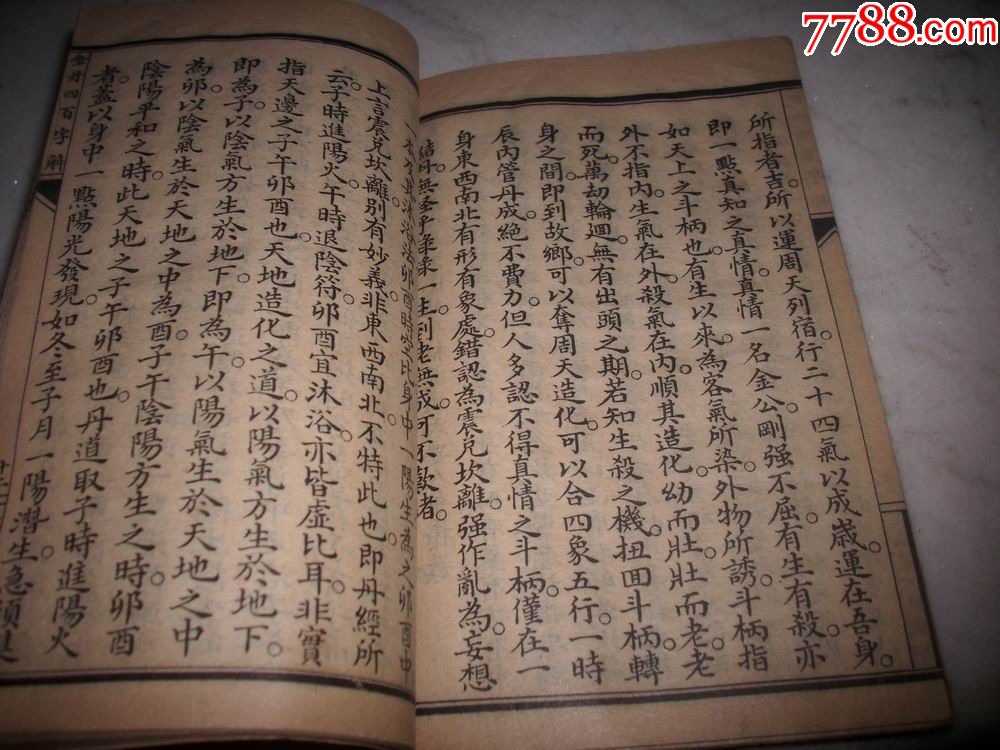 7788.com
中国收藏热线
所指者吉。所以運周天列宿。行二十四氣以成歲。運在吾身。
即一點真知之真情。真情一名金公。剛强不屈。有生有殺。亦
如天上之斗柄也。有生以來。為客氣所染。外物所誘。斗柄指
外不指内。生氣在外。殺氣在内。順其造化。幼而壯。壯而老。老
而死。萬劫輪迴。無有出頭之期。若知生殺之機。扭回斗柄。轉
身之間。即到故鄉。可以奪周天造化。可以合四象五行。一時
辰内管丹成。絶不費力。但人多認不得真情之斗柄。僅在一
身東西南北有形有象處。錯認為震兑坎離。强作亂為。妄想
結丹。無怪乎碌碌一生。到老無成。可不歎者。
沐浴法卯酉時空比身中一陽生為之卯酉中
上言震兑坎離。别有妙義。非東西南北。不特此也。即丹經所
云。子時進陽火。午時退陰符。卯酉宜沐浴。亦皆虚比耳。非實
指天邊之子午卯酉也。天地造化之道。以陽氣方生於地下。
即為子。以陰氣方生於地下。即為午。以陽氣生於天地之中
為卯。以陰氣生於天地之中為酉。子午陰陽方生之時。卯酉
陰陽平和之時。此天地之子午卯酉也。丹道取子時進陽火
者。蓋以身中一點陽光發現。如冬至子月一陽潛生。急須進
金丹四百字解